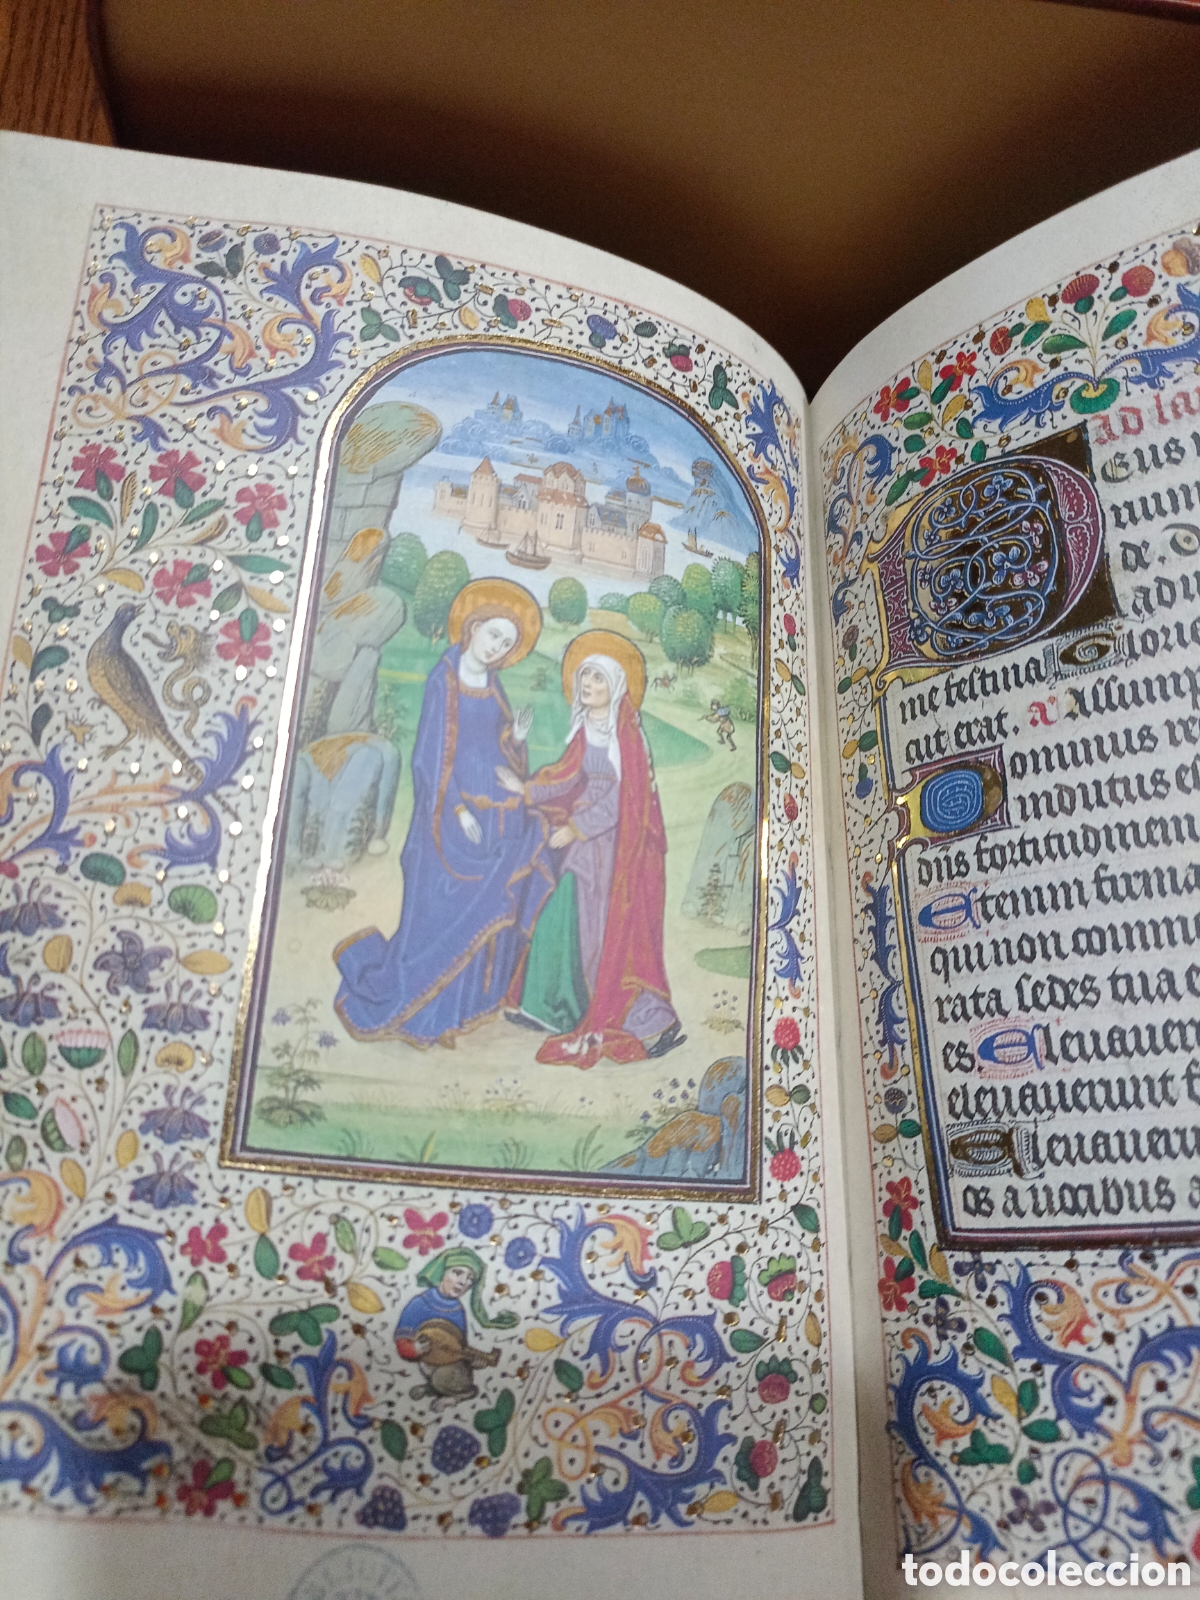 Ad la
Eus i
num
de. D
adiu
me festina Glorie
cut erat. Assump
Dominus re
indutus es
dns fortitudinem
Etenim firma
qui non comm
rata sedes tua e
es Eleuauer
eleuauerunt f
Eleuauerun
os a uocibus a
todocoleccion